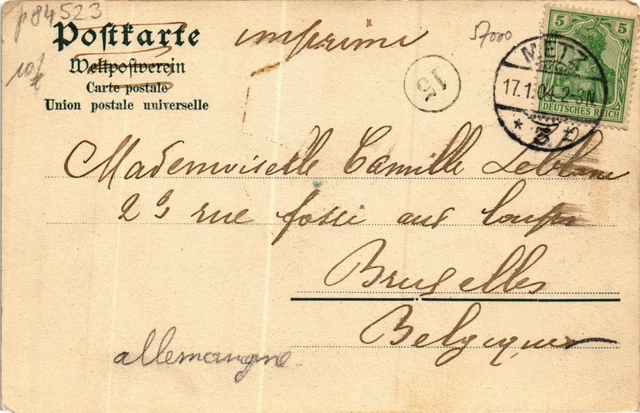 p84523
Postkarte
imprimé
57000
Weltpostverein
10/
Carte postale
Union postale universelle
15
5 5
DEUTSCHES REICH
METZ
17.1.04.2-3N.
* 3 *
Mademoiselle Camille Leblanc
23 rue fossé aux loups
Bruxelles
Belgique
allemangne